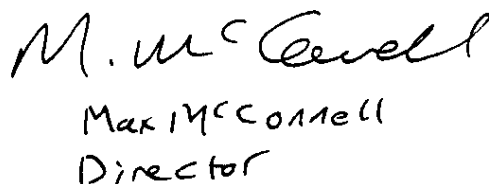 M. McConnell
Max McConnell
Director